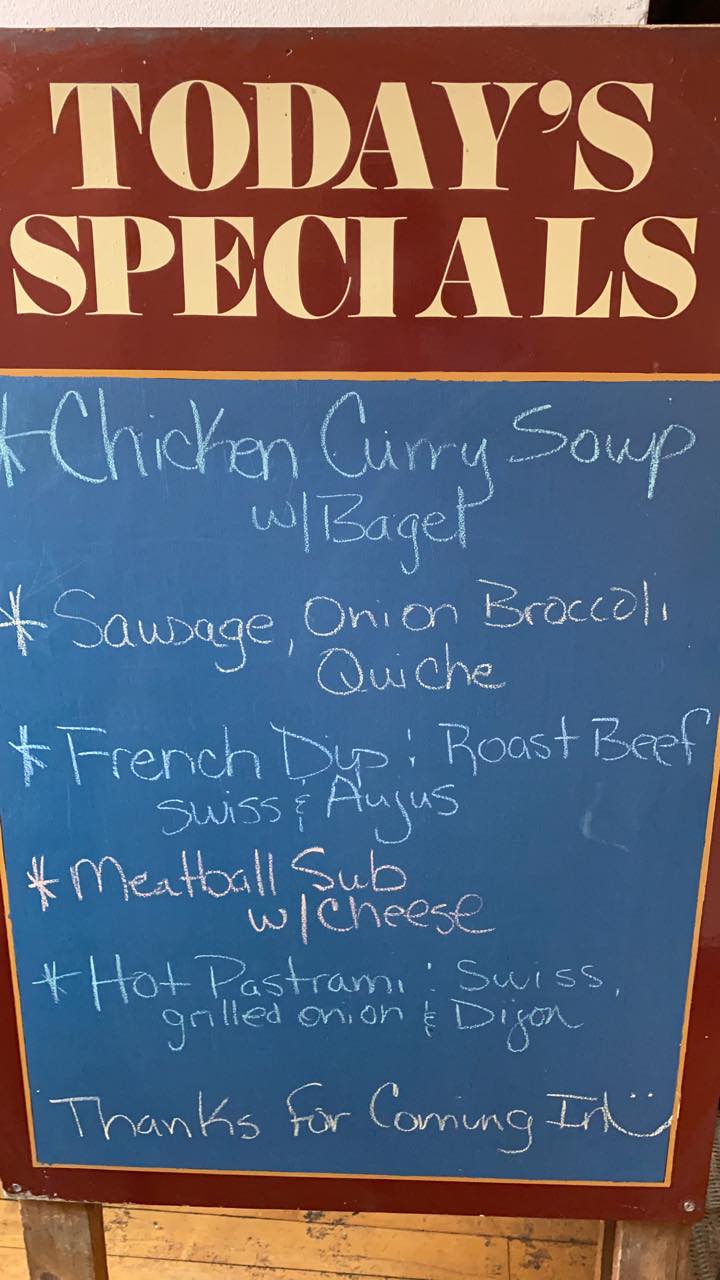 TODAY'S
SPECIALS
* Chicken Curry Soup
w/Bagel
* Sausage, Onion Broccoli
Quiche
* French Dip: Roast Beef
swiss & Aujus
* Meatball Sub
w/cheese
* Hot Pastrami: Swiss,
grilled onion & Dijon
Thanks For Coming In!